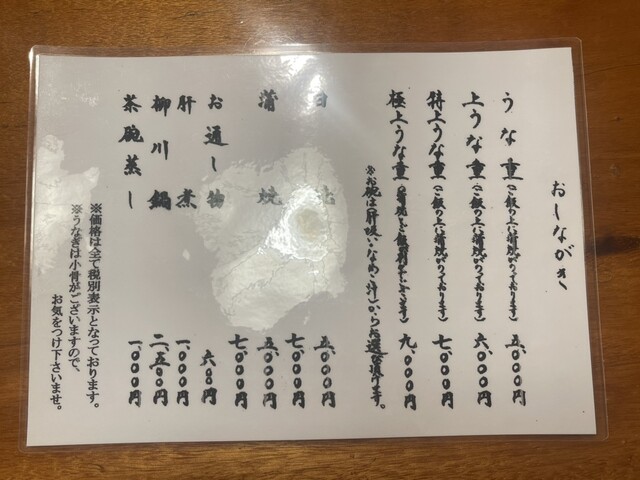 おしながき
うな重(ご飯の上に蒲焼がのっております) 五、〇〇〇円
上うな重(ご飯の上に蒲焼がのっております) 六、〇〇〇円
特上うな重(ご飯の上に蒲焼がのっております) 七、〇〇〇円
極上うな重(蒲焼とご飯別々でございます) 九、〇〇〇円
※お椀は肝吸い・なめこ汁からお選び頂けます。
白 五、〇〇〇円
七、〇〇〇円
蒲焼 五、〇〇〇円
七、〇〇〇円
お通し物 六〇〇円
肝煮 一、〇〇〇円
柳川鍋 二、五〇〇円
茶碗蒸し 一、〇〇〇円
※価格は全て税別表示となっております。
※うなぎは小骨がございますので、
お気をつけ下さいませ。